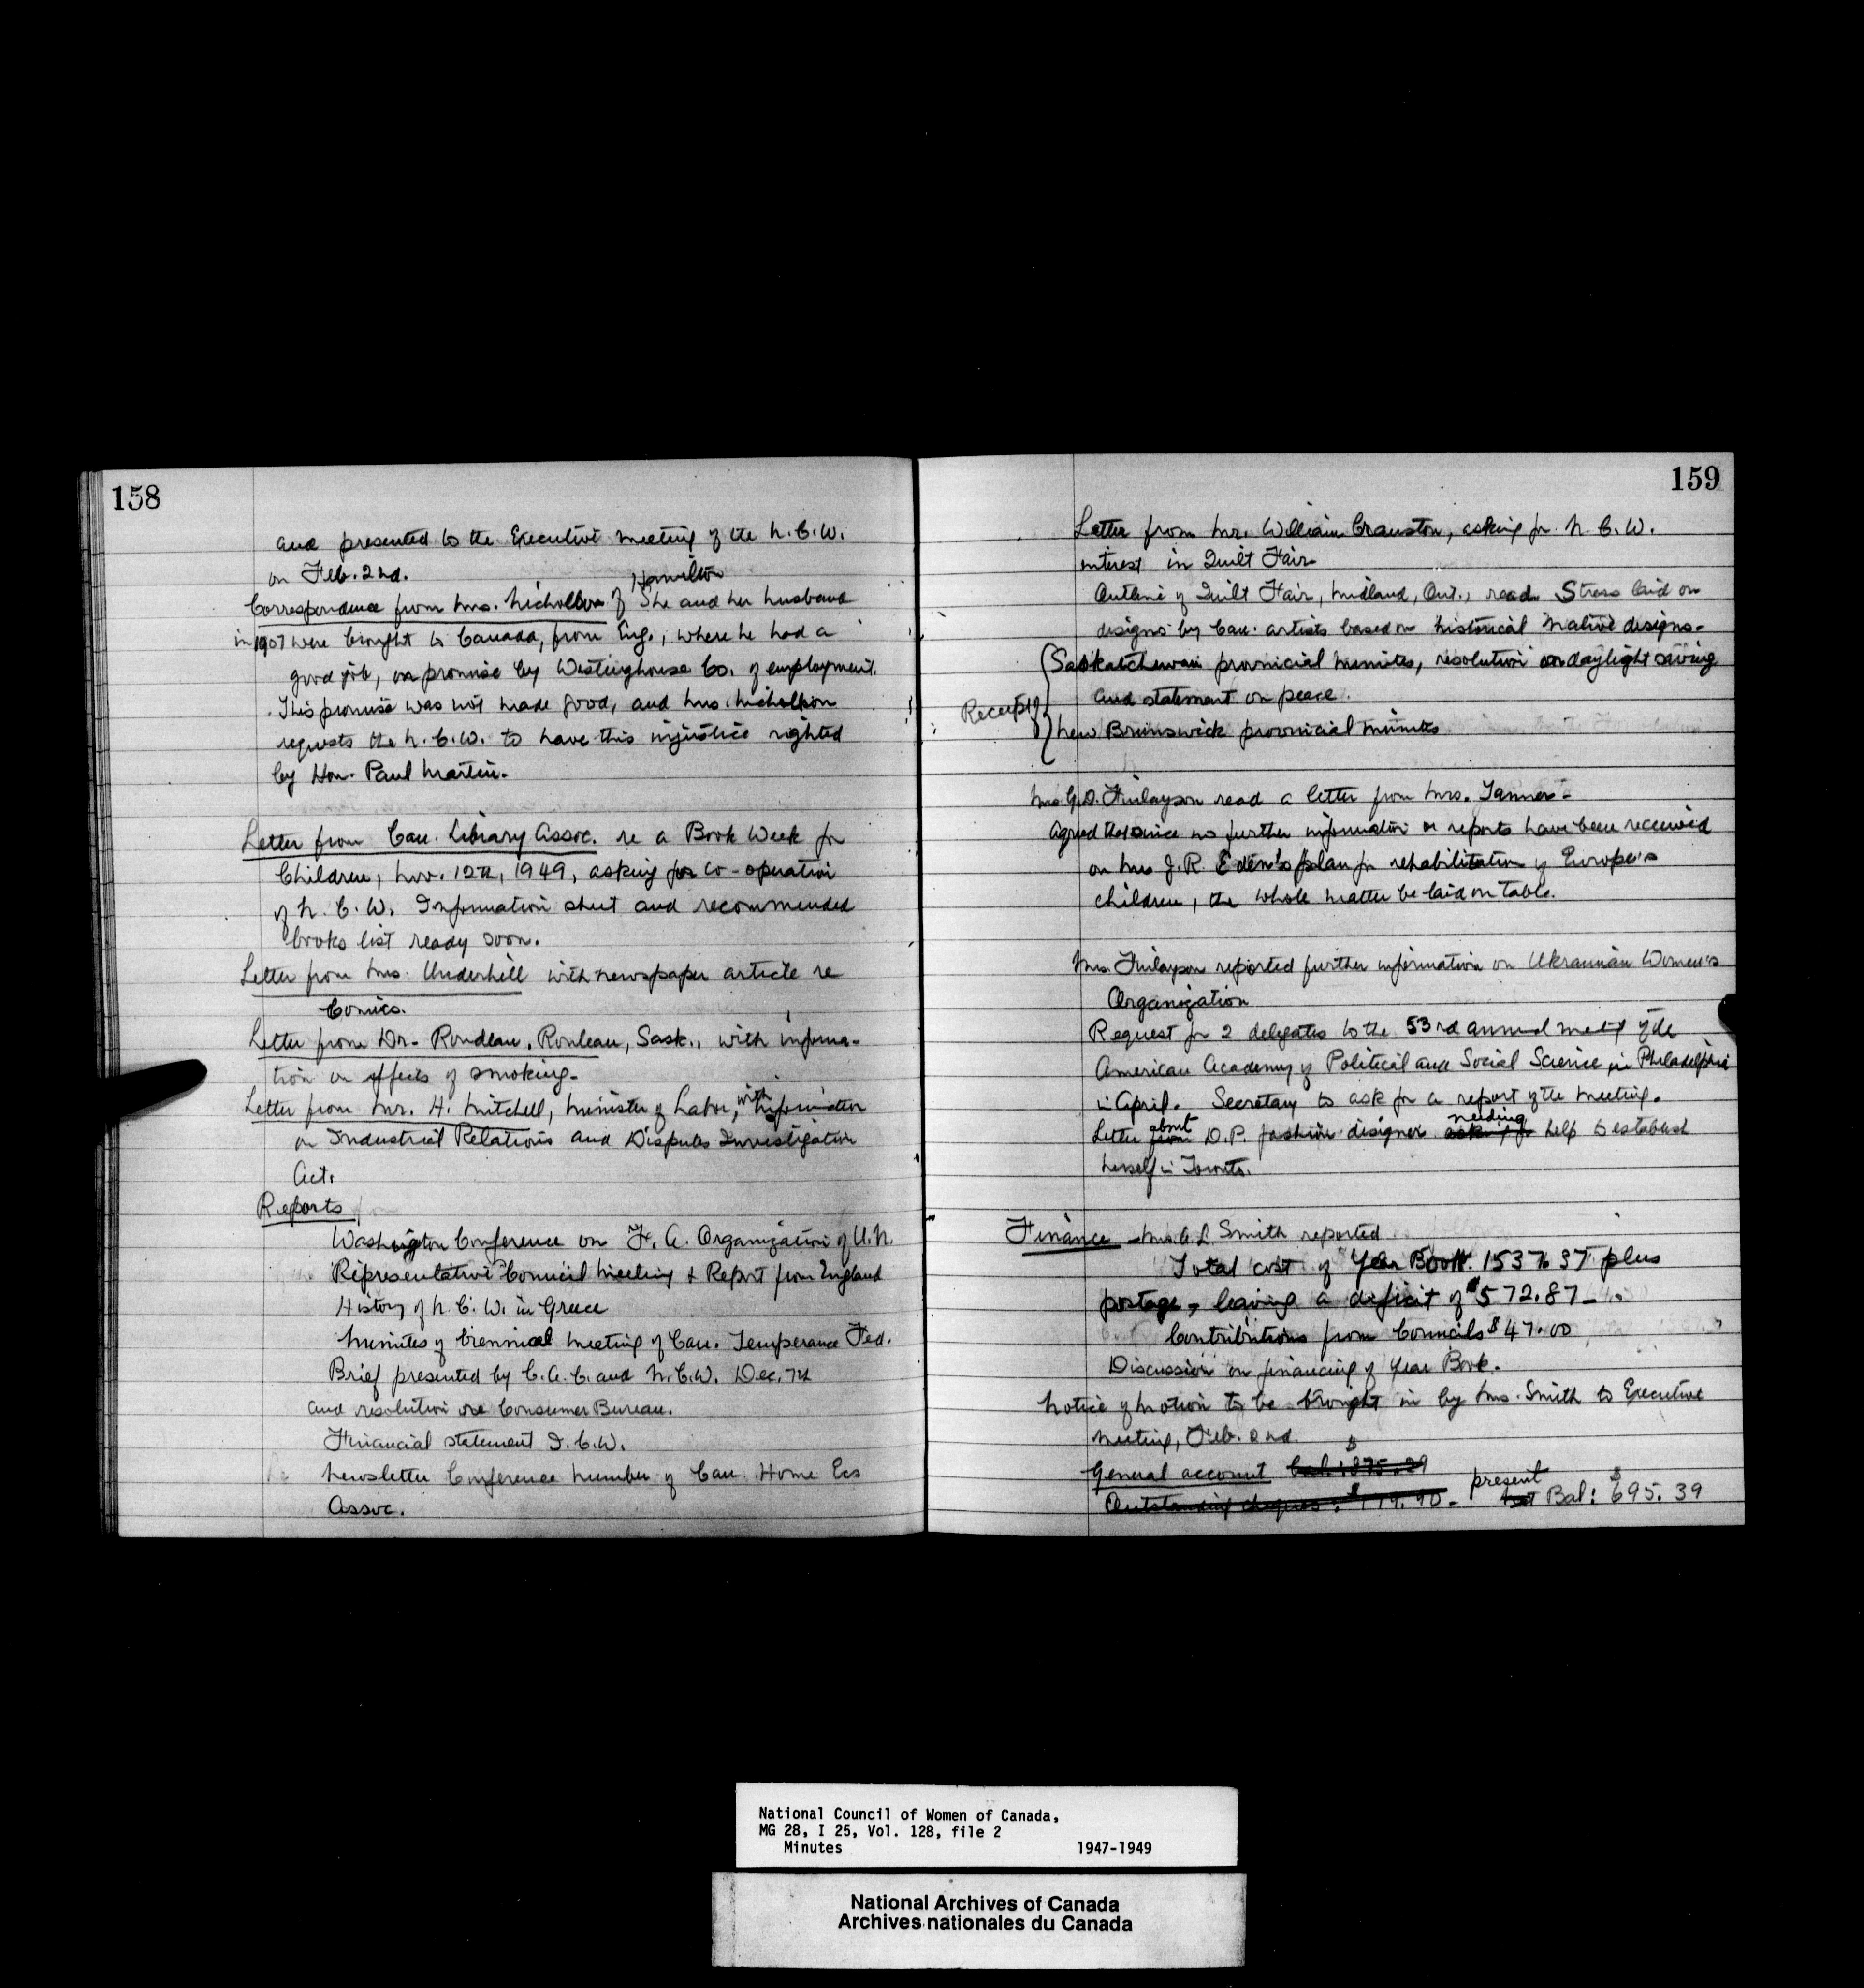 158
and presented to the Executive meeting of the N.C.W.
on Feb. 2nd.
Correspondence from Mrs. Nicholson of Hamilton She and her husband
in 1907 were brought to Canada, from Eng., where he had a
good job, on promise by Westinghouse Co. of employment.
This promise was not made good, and Mrs. Nicholson
requests the N.C.W. to have this injustice righted
by Hon. Paul Martin.
Letter from Can. Library Assoc. re a Book Week for
Children, Nov. 12th, 1949, asking for co-operation
of N.C.W. Information sheet and recommended
books list ready soon.
Letter from Mrs. Underhill with newspaper article re
Comics.
Letter from Dr. Rondeau, Rouleau, Sask., with informa-
tion on effects of smoking.
Letter from Mr. H. Mitchell, Minister of Labor, with information
on Industrial Relations and Disputes Investigation
Act.
Reports
Washington Conference on F. A. Organization of U.N.
Representative Council Meeting & Report from England
History of N.C.W. in Greece
Minutes of biennial meeting of Can. Temperance Fed.
Brief presented by C.A.C. and N.C.W. Dec. 7th
and resolution re Consumer Bureau.
Financial statement I.C.W.
Newsletter Conference number of Can Home Ecs
Assoc.
159
Letter from Mr. William Cranston, asking for N.C.W.
interest in Quilt Fair
Outline of Quilt Fair, Midland, Ont., read. Stress laid on
designs by Can. artists based on historical native designs.
Saskatchewan provincial minutes, resolution on daylight saving
and statement on peace.
Receipt of
New Brunswick provincial minutes
Mrs G.D. Finlayson read a letter from Mrs. Tanner.
Agreed that since no further information or reports have been received
on Mrs J.R. Eden's plan for rehabilitation of Europe's
children, the whole matter be laid on table.
Mrs. Finlayson reported further information on Ukranian Women's
Organization
Request for 2 delegates to the 53rd annual meeting of the
American Academy of Political and Social Science in Philadelphia
in April. Secretary to ask for a report of the meeting.
Letter from about D.P. fashion designer asking for needing help to establish
herself in Toronto.
Finance - Mrs A.L. Smith reported
Total cost of Year Book 1537.37 plus
postage, leaving a deficit of $572.87 - .
Contributions from Councils $47.00
Discussion on financing of Year Book.
Notice of Motion to be brought in by Mrs. Smith to Executive
Meeting, Feb. 2nd.
General account bal. $875.29
Outstanding cheques: $179.90 - present Bal: $695.39
National Council of Women of Canada,
MG 28, I 25, Vol. 128, file 2
Minutes 1947-1949
National Archives of Canada
Archives nationales du Canada